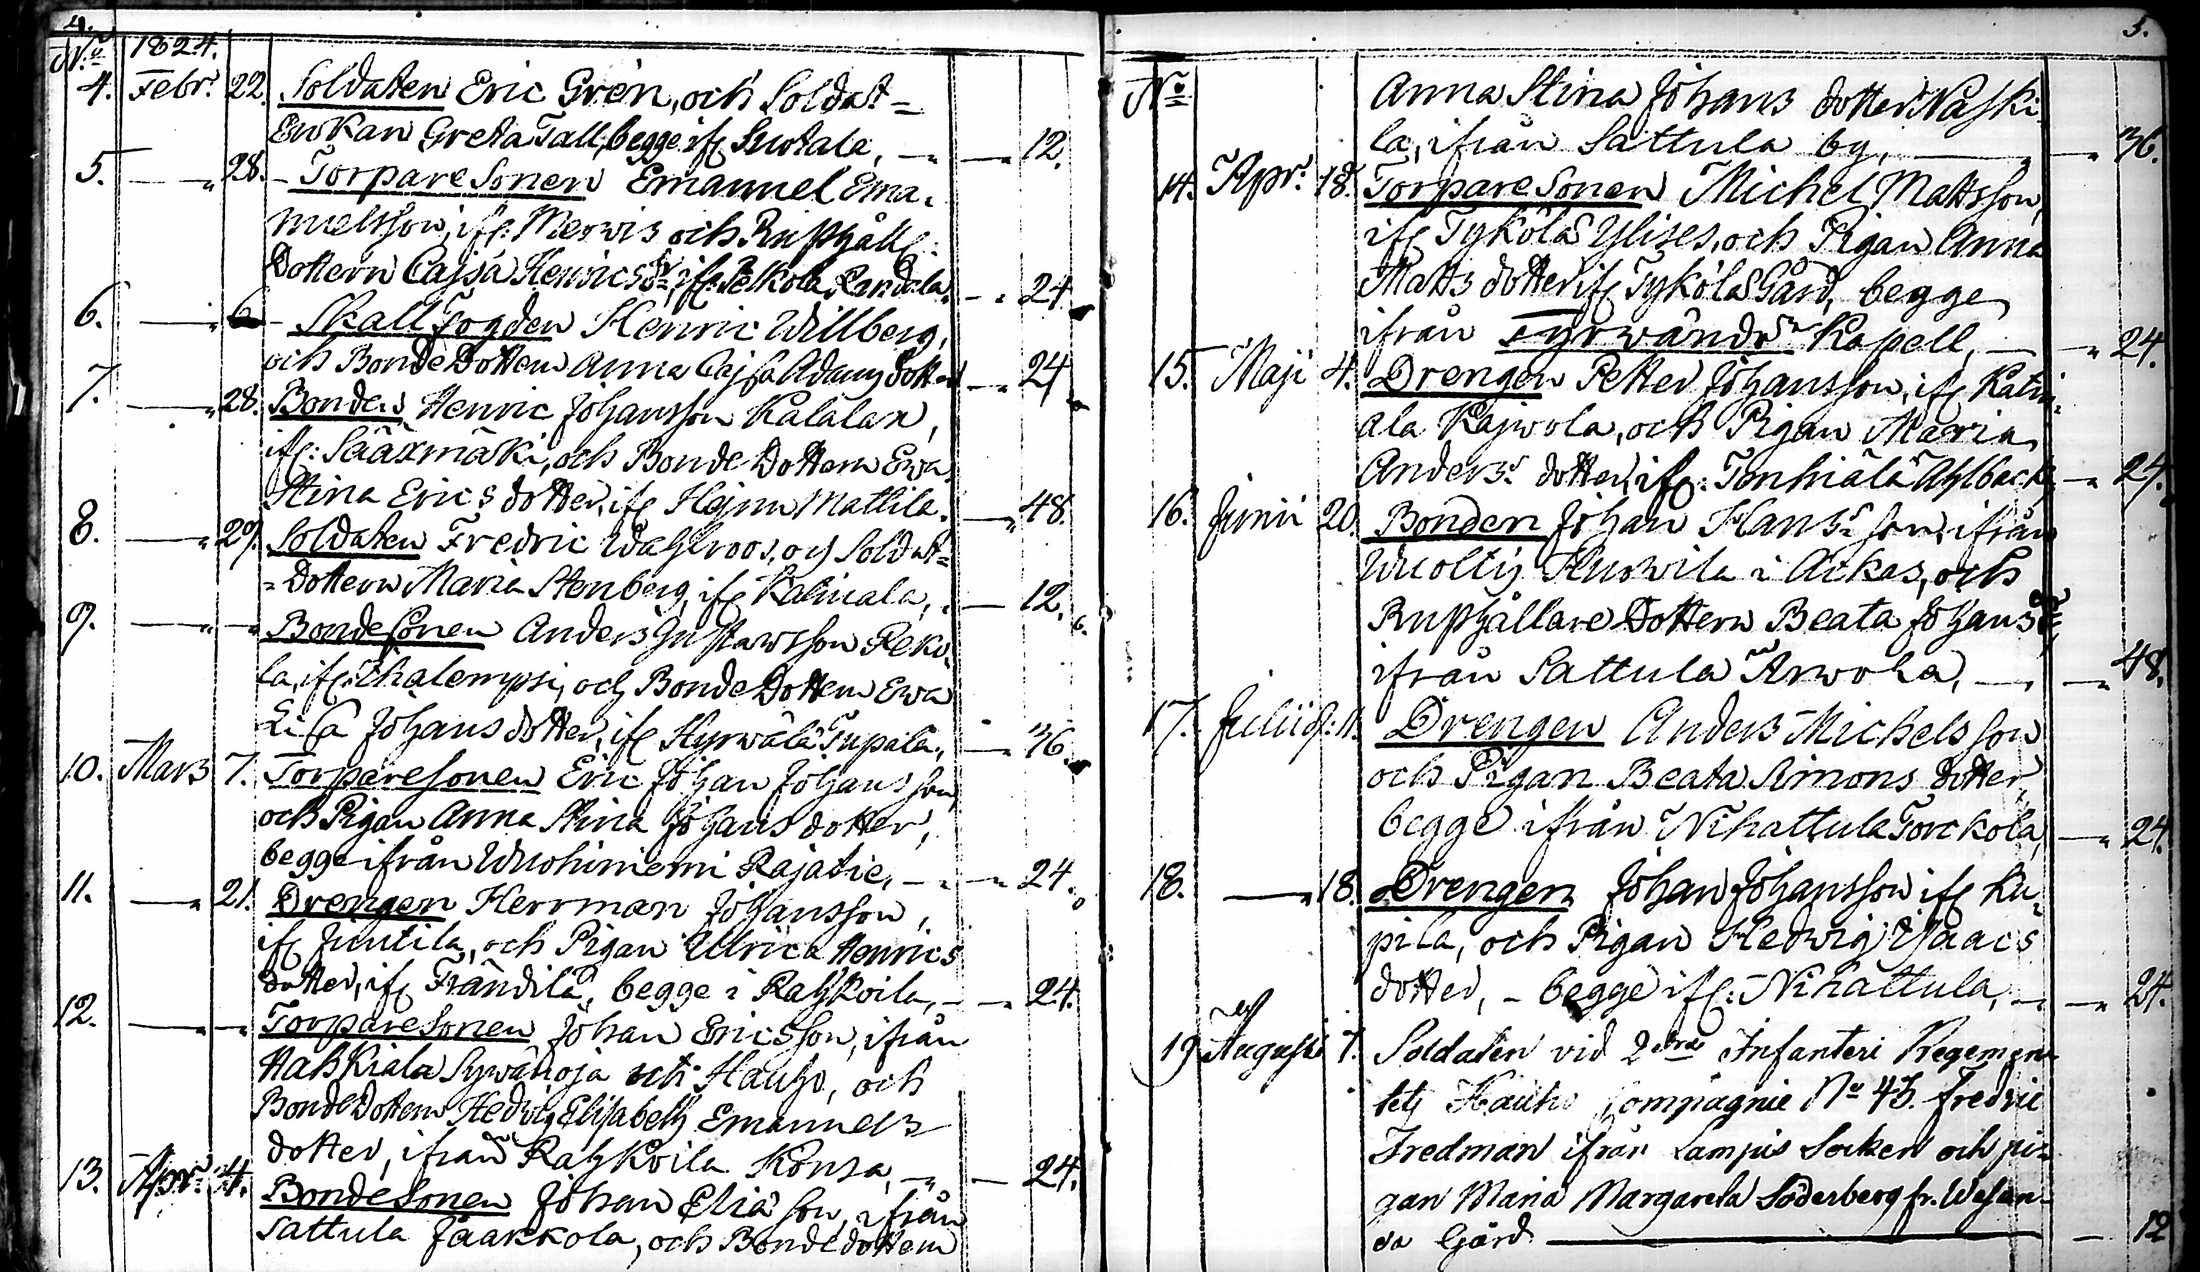 4.
No 1824.
4. Febr. 22. Soldaten Eric Grén, och Soldat=
Enkan Greta Tall, begge if: Suotala, 12.
5. 28. Torpare Sonen Emanuel Ema-
nuelsson, if: Merwis och Rusthåll:
Dottern Cajsa Henrics dr, if: Pelkola Randala, 24
6. 6 Skall Fogden Henric Willberg,
och Bonde Dottern Anna Cajsa Adams dotter 24
7. 28. Bonden Henric Johansson Kalalax,
if: Sääxmäki, och Bonde Dottern Ewa
Stina Erics dotter, if: Hejnu Mattila. 48.
8. 29. Soldaten Fredric Wahlroos, och Soldat=
=Dottern Maria Stenberg, if: Katinala, 12.
9. Bonde Sonen Anders Gustawsson Reko-
la, if: Ihalempsi, och Bonde Dottern Ewa
Lisa Johans dotter, if: Hyrwälä Tupala, 36.
10. Mars 7. Torpare Sonen Eric Johan Johansson
och Pigan Anna Stina Johans dotter,
begge ifrån Wuohiniemi Rajatie, 24.
11. 21. Drengen Herrman Johansson,
if: Juutila, och Pigan Ulrica Henrics
dotter, if: Frändilä, begge i Rahkoila, 24.
12. Torpare Sonen Johan Ericsson, ifrån
Hahkiala Sywänoja och Hauho, och
Bonde Dottern Hedwig Elisabeth Emanuels
dotter, ifrån Rahkoila Konsa, 24.
13. Apr. 4. Bonde Sonen Johan Elia son, ifrån
Sattula Jaakkola, och Bonde dottern
5.
No
Anna Stina Johans dotter Naski-
la, ifrån Sattula by, 36.
14. Apr. 18. Torpare Sonen Michel Mattsson,
if: Tykölä Ylises, och Pigan Anna
Matts dotter if: Tykölä Gård, begge
ifrån Tyrwändö Kapell, 24.
15. Maji 4. Drengen Petter Johansson, if: Katin-
ala Kajwola, och Pigan Maria
Anders dotter, if: Tenhiälä Ahlbacka 24.
16. Junii 20. Bonden Johan Hans son, ifrån
Wuoltij Huowila i Ackas, och
Rusthållare Dottern Beata Johans dr,
ifrån Sattula Arwola, 48.
17. Julii d: 11. Drengen Anders Michelsson
och Pigan Beata Simons dotter,
begge ifrån Nihattula Torckola, 24.
18. 18. Drengen Johan Johansson if: Ku-
pila, och Pigan Hedwig Isaacs
dotter, - begge if: Nihattula, 24.
19 Augusti 1. Soldaten vid 2dra Infanteri Regemen-
tets Hauho Compagnie No 45. Fredric
Fredman ifrån Lampis Socken och pi-
gan Maria Margareta Söderberg fr. Wesun-
da Gård 12